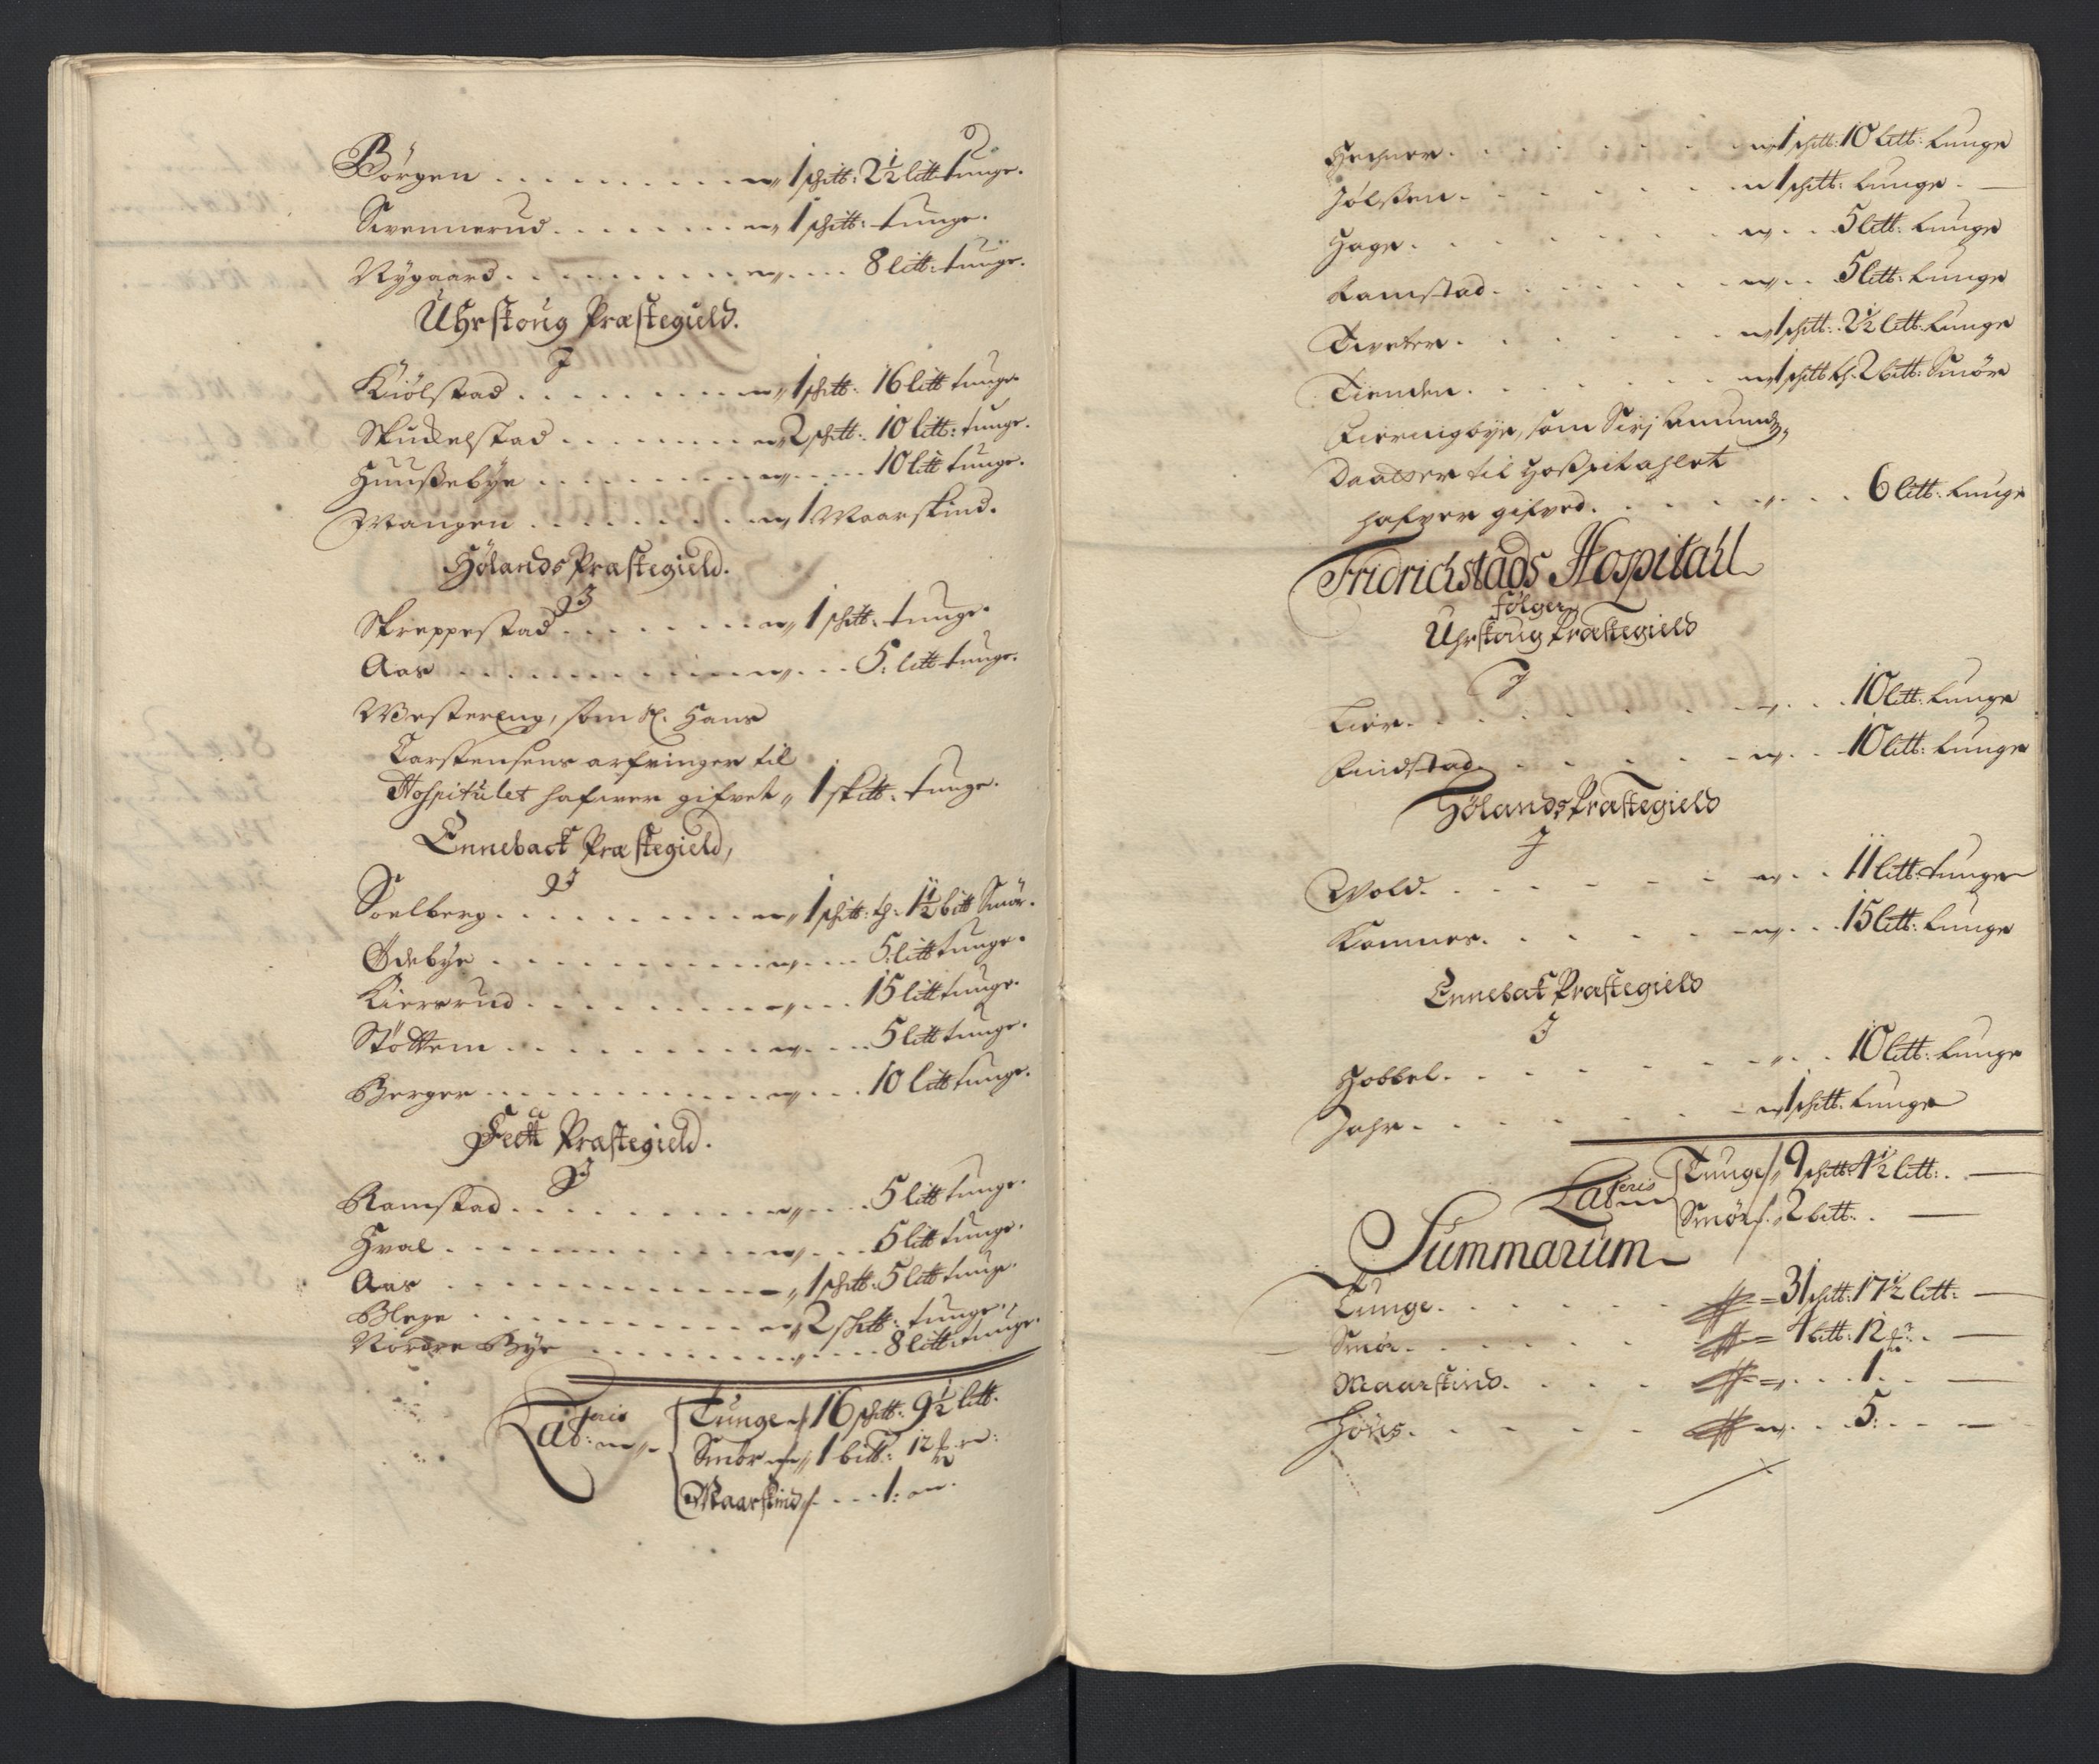 Börgen . . . . . . . . . . 1 schtt: 2½ litt tunge.
Svennerud . . . . . . . . 1 schtt: tunge.
Nygaard . . . . . . . . . 8 litt: tunge.
Uhrskoug Præstegield.
J
Kiölstad . . . . . . . . . 1 schtt: 16 litt tunge.
Skuckelstad . . . . . . . . 2 schtt: 10 litt: tunge.
Huußebÿe . . . . . . . . . 10 litt tunge.
Mangen . . . . . . . . . 1 Maarskind.
Hölands Præstegield.
J
Skreppestad . . . . . . . 1 schtt: tunge.
Aas . . . . . . . . . . . 5: litt tunge.
Westereng, som Sl. Hans
Carstensens arfvinger til
Hospitalet hafver gifvet 1 schtt: tunge.
Enneback Præstegield,
J
Soelberg . . . . . . . . . 1 schtt: th: 1½ bitt Smör.
Ödebÿe . . . . . . . . . . 5: litt tunge.
Kiersrud . . . . . . . . . 15 litt tunge.
Stöttem . . . . . . . . . 5 litt tunge.
Berger . . . . . . . . . . 10 litt tunge.
Fedt Præstegield.
J
Ramstad . . . . . . . . . 5 litt tunge.
Hval . . . . . . . . . . . 5 litt tunge.
Aas . . . . . . . . . . . 1 schtt: 5 litt tunge.
Blege . . . . . . . . . . 2 schtt: tunge.,
Nordre Bÿe . . . . . . . . 8 litt: tunge.
Lateris Tunge 16 schtt: 9½ litt.
Smör 1 bitt: 12
Maarskind . . . 1:
Hechner . . . . . . . 1 schtt: 10 litt: tunge
Jölsten . . . . . . . 1 schtt: tunge.
Hage . . . . . . . . 5 litt: tunge
Ramstad . . . . . . . 5 litt: tunge
Tveter . . . . . . . 1 schtt: 2½ litt: tunge
Tienden . . . . . . . 1 schtt th: 2 bitt: Smör
Fierningbÿe, som Siri Amunds
Daatter til Hoßpitahlet
hafver gifved . . . . . . 6 litt: tunge
Fridrichstads Hospitall
følger
Uhrskoug Præstegield
J
Lier . . . . . . . . 10 litt: tunge
Findstad . . . . . . . 10 litt: tunge
Hölands Præstegield
J
Wold . . . . . . . . 11 litt: tunge
Kamnes . . . . . . . 15 litt: tunge
Ennebak Præstegield
J
Hobbel . . . . . . . 10 litt: tunge
Jahr . . . . . . . . 1 schtt: tunge
Lateris Tunge 9 schtt: 4½ litt:
Smör 2 bitt:
Summarum
Tunge . . . . . . 31 schtt: 17½ litt:
Smör . . . . . . 4 bitt: 12
Maarskind . . . . 1
Höns . . . . . . 5: